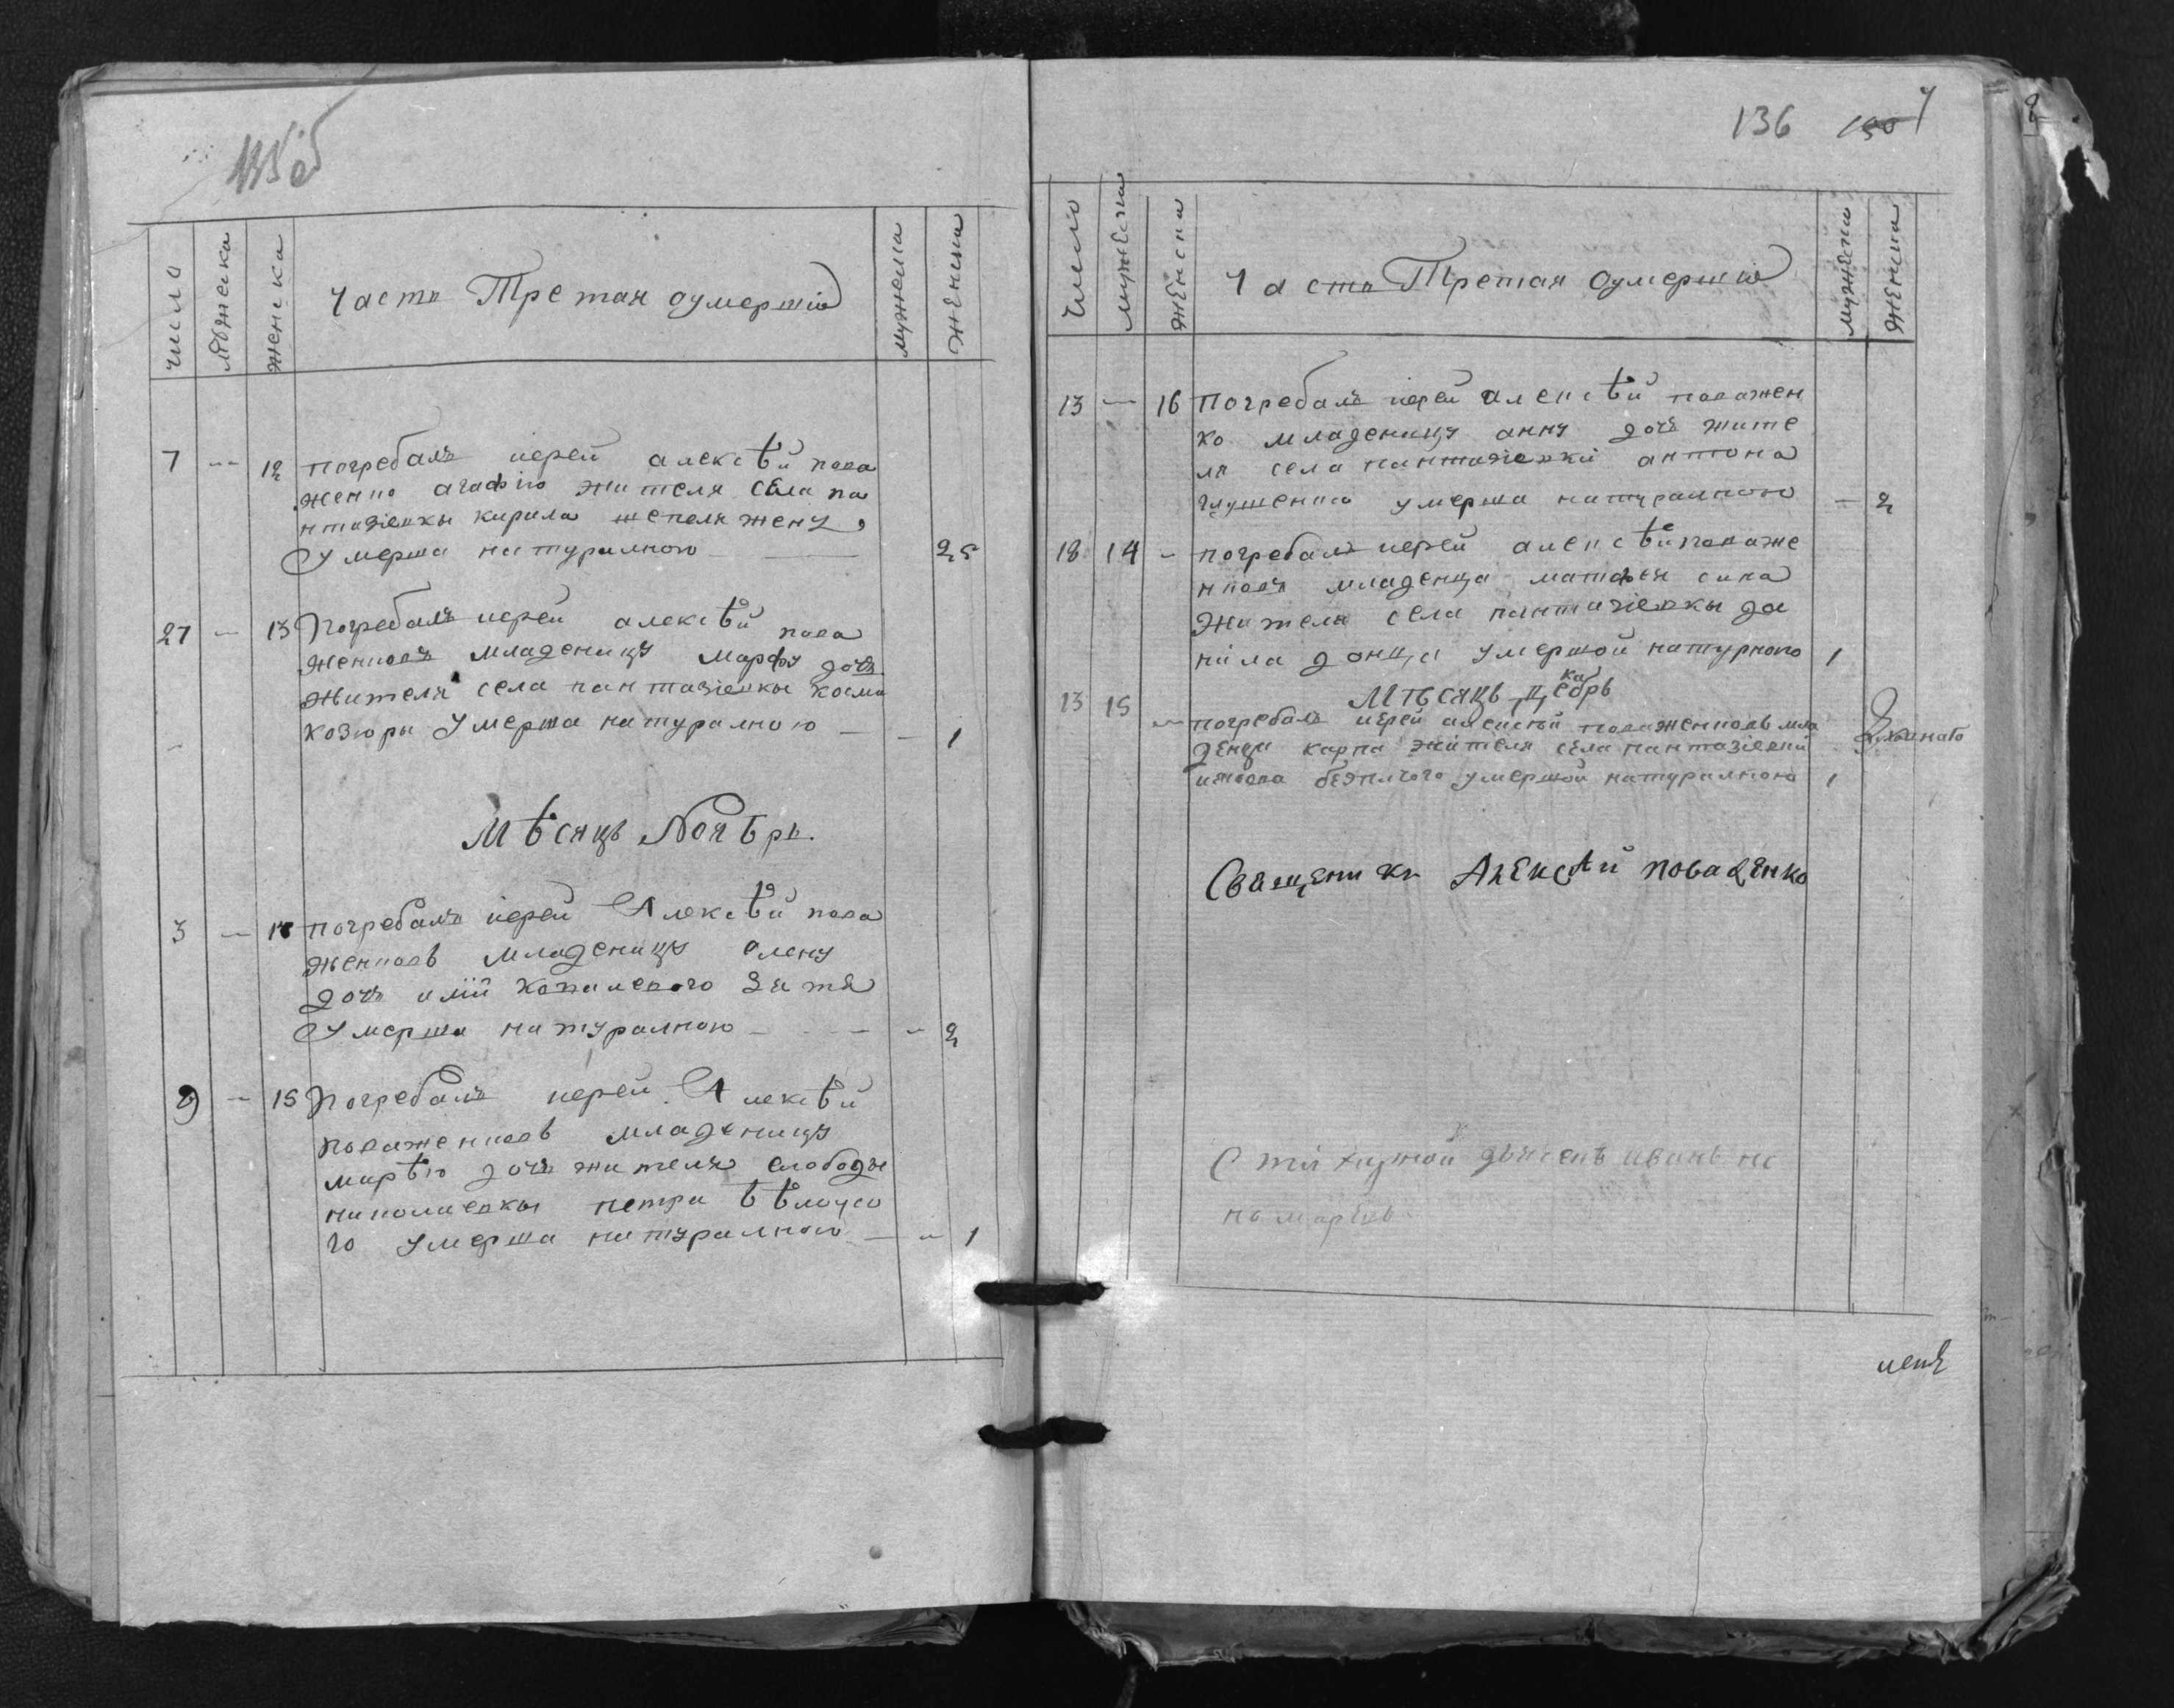 135 об
числа мужеска женска Часть Третая оумершіхъ мужеска женска
7 -- 12 погребалъ иерей алексѣй пова
женко агафію жителя села па
нтазіевки кирила шепеля жену,
Умерша натуралною — 25
27 — 13 Погребалъ иерей алексѣй пова
женковъ младеницу марфу дочь
жителя села пантазіевки косми
козюри Умерша натуралною — — 1
Мѣсяцъ Ноябрь.
3 — 14 погребалъ иерей Алексѣй пова
женковъ младеницу олену
дочь илїи зятя
Умерша натуралною - - — - 2
9 — 15 Погребалъ иерей Алексѣй
поваженковъ младеницу
марѣю дочь жителя слободы
николаевки петра бѣлоусо
го умерша натуралною — - 1
136 7
число мужеска женска Часть Третая оумершіхъ мужеска женска
13 — 16 погребалъ иерей алексѣй поважен
ко младеницу анну дочь жите
ля села пантазіевки антона
глушенка умерша натуралною — 2
18 14 - погребалъ иерей алексѣй поваже
нковъ младенца матфея сина
Жителя села пантазіевки да
ніла донца умершой натурного 1
Мѣсяцъ декабрь
13 15 — погребалъ иерей алексѣй поваженковъ мла
денца карпа жителя села пантазіевки
умершой натуралною 1
Священикъ Алексѣй Поваженко
С тій дьячекъ иванъ